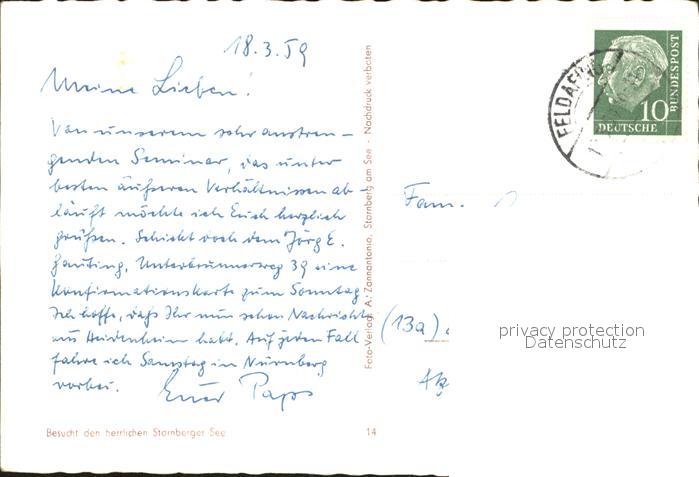 18.3.59
Meine Lieben!
Von unserem sehr anstren-
genden Seminar, das unter
besten äußeren Verhältnissen ab-
läuft möchte ich Euch herzlich
grüßen. Schickt doch dem Jörg E.
Gauting, Unterbrunnerweg 39 eine
Konfirmationskarte zum Sonntag.
Ich hoffe, daß Ihr nun schon Nachricht
aus Heidenheim habt. Auf jeden Fall
fahre ich Samstag in Nürnberg
vorbei. Euer Paps
Besucht den herrlichen Starnberger See
14
Foto-Verlag: A. Zannantonio, Starnberg am See - Nachdruck verboten
FELDAFING
10
DEUTSCHE
BUNDESPOST
Fam.
(13a)
privacy protection
Datenschutz